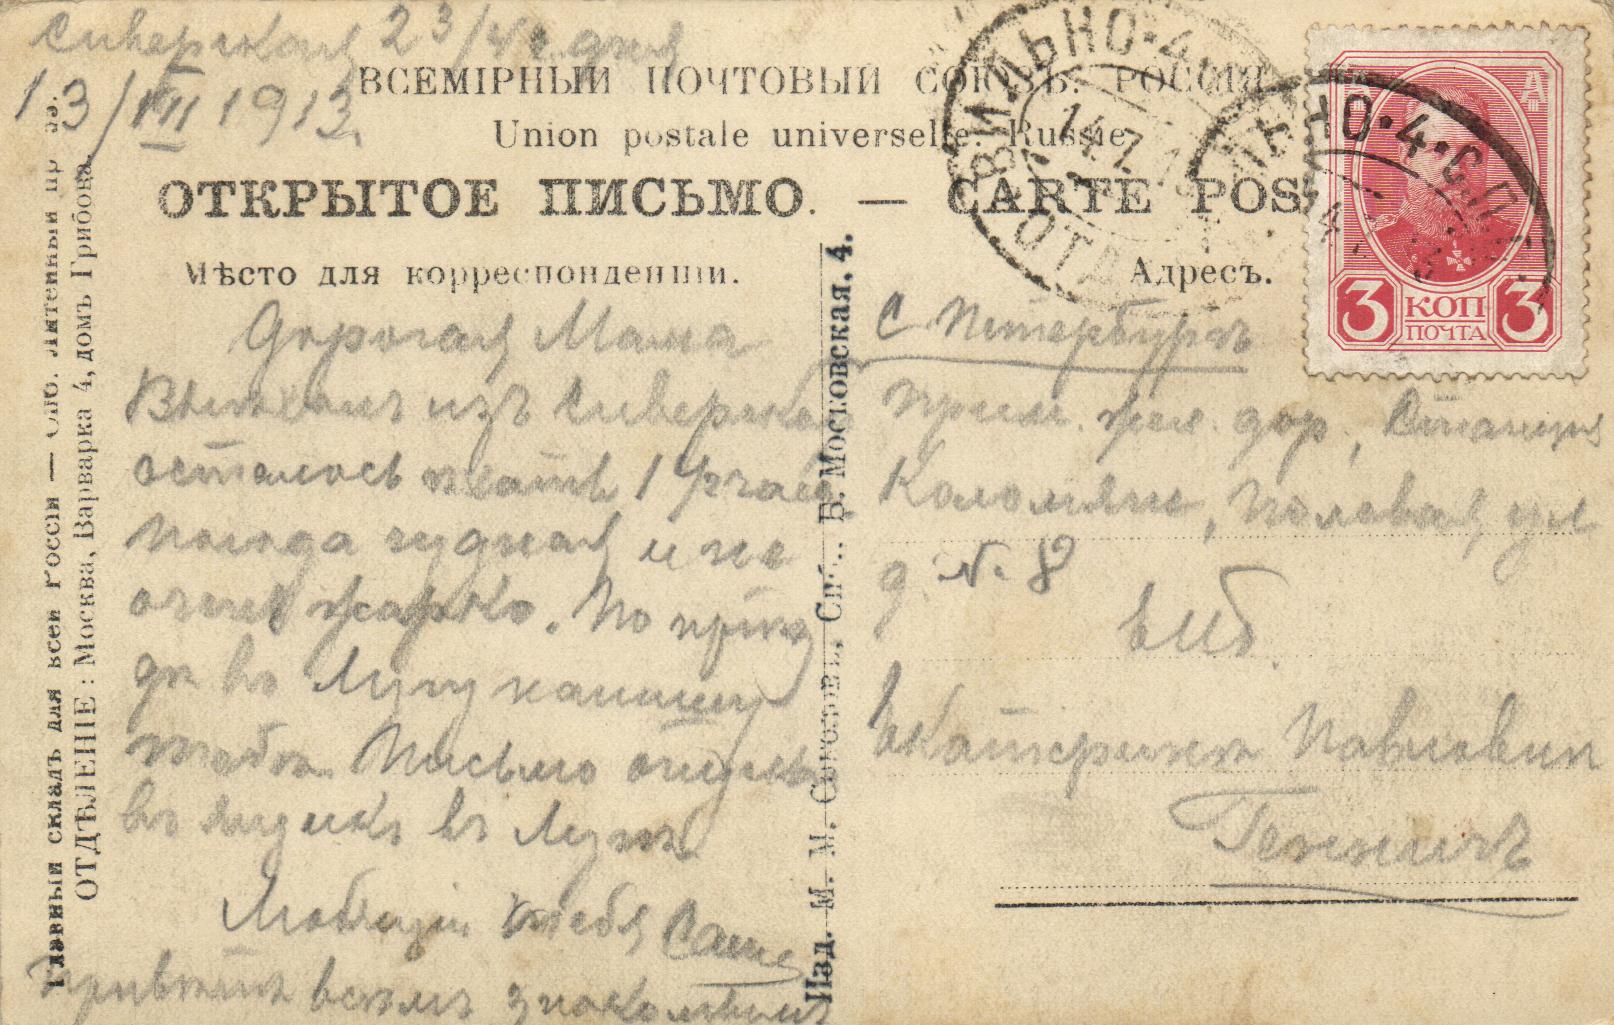 Сиверская 2 3/4 ч. дня
13/VII 1913.
ВСЕМІРНЫЙ ПОЧТОВЫЙ СОЮЗЪ. РОССІЯ
Union postale universelle. Russie
ОТКРЫТОЕ ПИСЬМО. — CARTE POS
Мѣсто для корреспонденціи.
Дорогая Мама
Выѣхали изъ Сиверской
осталось ѣхать 1 1/2 часа
погода чудная и не
очень жарко. По пріѣз
дѣ въ Лугу напишу
тебѣ. Письмо опущу
въ ящикъ въ Лугѣ.
Любящій тебя Саша
Привѣтъ всѣмъ знакомымъ
Главный складъ для всей Россіи — Спб. Литейный пр
ОТДѢЛЕНІЕ: Москва, Варварка 4, домъ Грибова.
Изд. М. М. Спб., Б. Московская, 4.
Адресъ.
С. Петербургъ
Прим. жел. дор., Станция
Коломяги, Полевая ул
д. № 8
ЕИБ.
Екатеринѣ Павловнѣ
Геннингъ
ВИЛЬНО·4·
14.7.1
ОТД
НО·4·С.П.
3 КОП 3
ПОЧТА